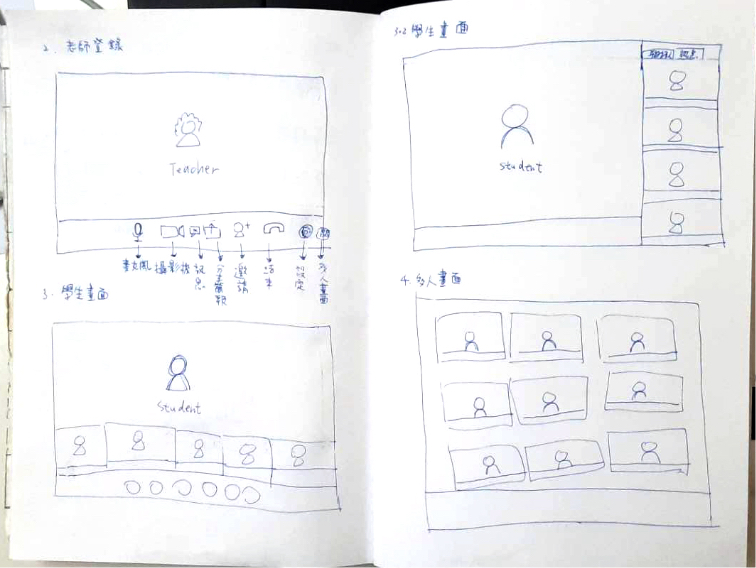 2. 老師登錄
Teacher
麥克風
攝影機
訊息
分享簡報
邀請
結束
設定
多人畫面
3. 學生畫面
student
3-2 學生畫面
訊息
student
4. 多人畫面